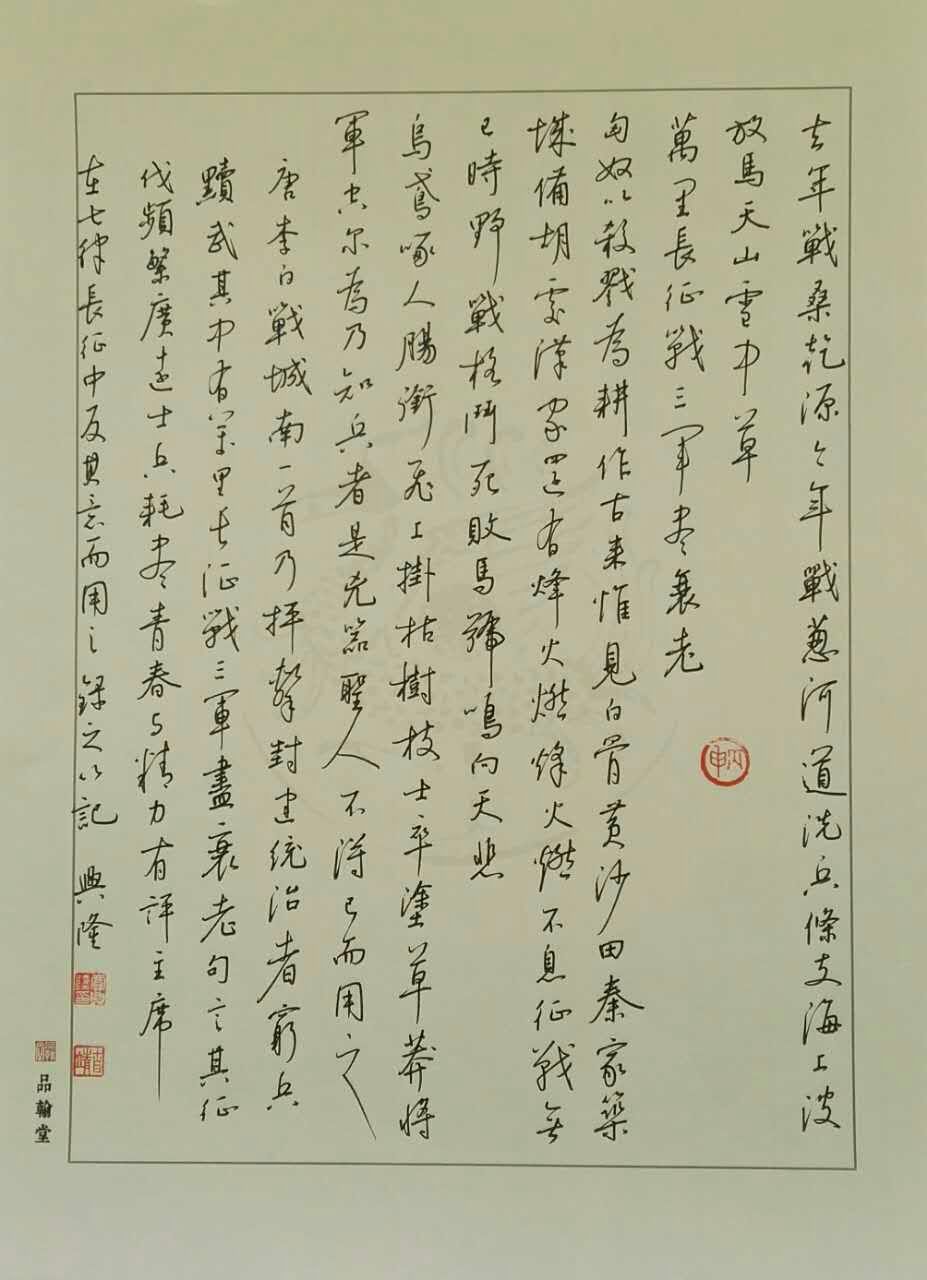 去年戰桑乾源今年戰蔥河道洗兵條支海上波
放馬天山雪中草
萬里長征戰三軍盡衰老
匈奴以殺戮為耕作古來惟見白骨黃沙田秦家築
城備胡處漢家還有烽火燃烽火燃不息征戰無
已時野戰格鬥死敗馬號鳴向天悲
烏鳶啄人腸銜飛上掛枯樹枝士卒塗草莽將
軍空尔為乃知兵者是兇器聖人不得已而用之
唐李白戰城南一首乃抨擊封建統治者窮兵
黷武其中有萬里長征戰三軍盡衰老句言其征
伐頻繁廣遠士兵耗盡青春与精力有評主席
在七律長征中反其意而用之錄之以記 興隆
丙申
品翰堂